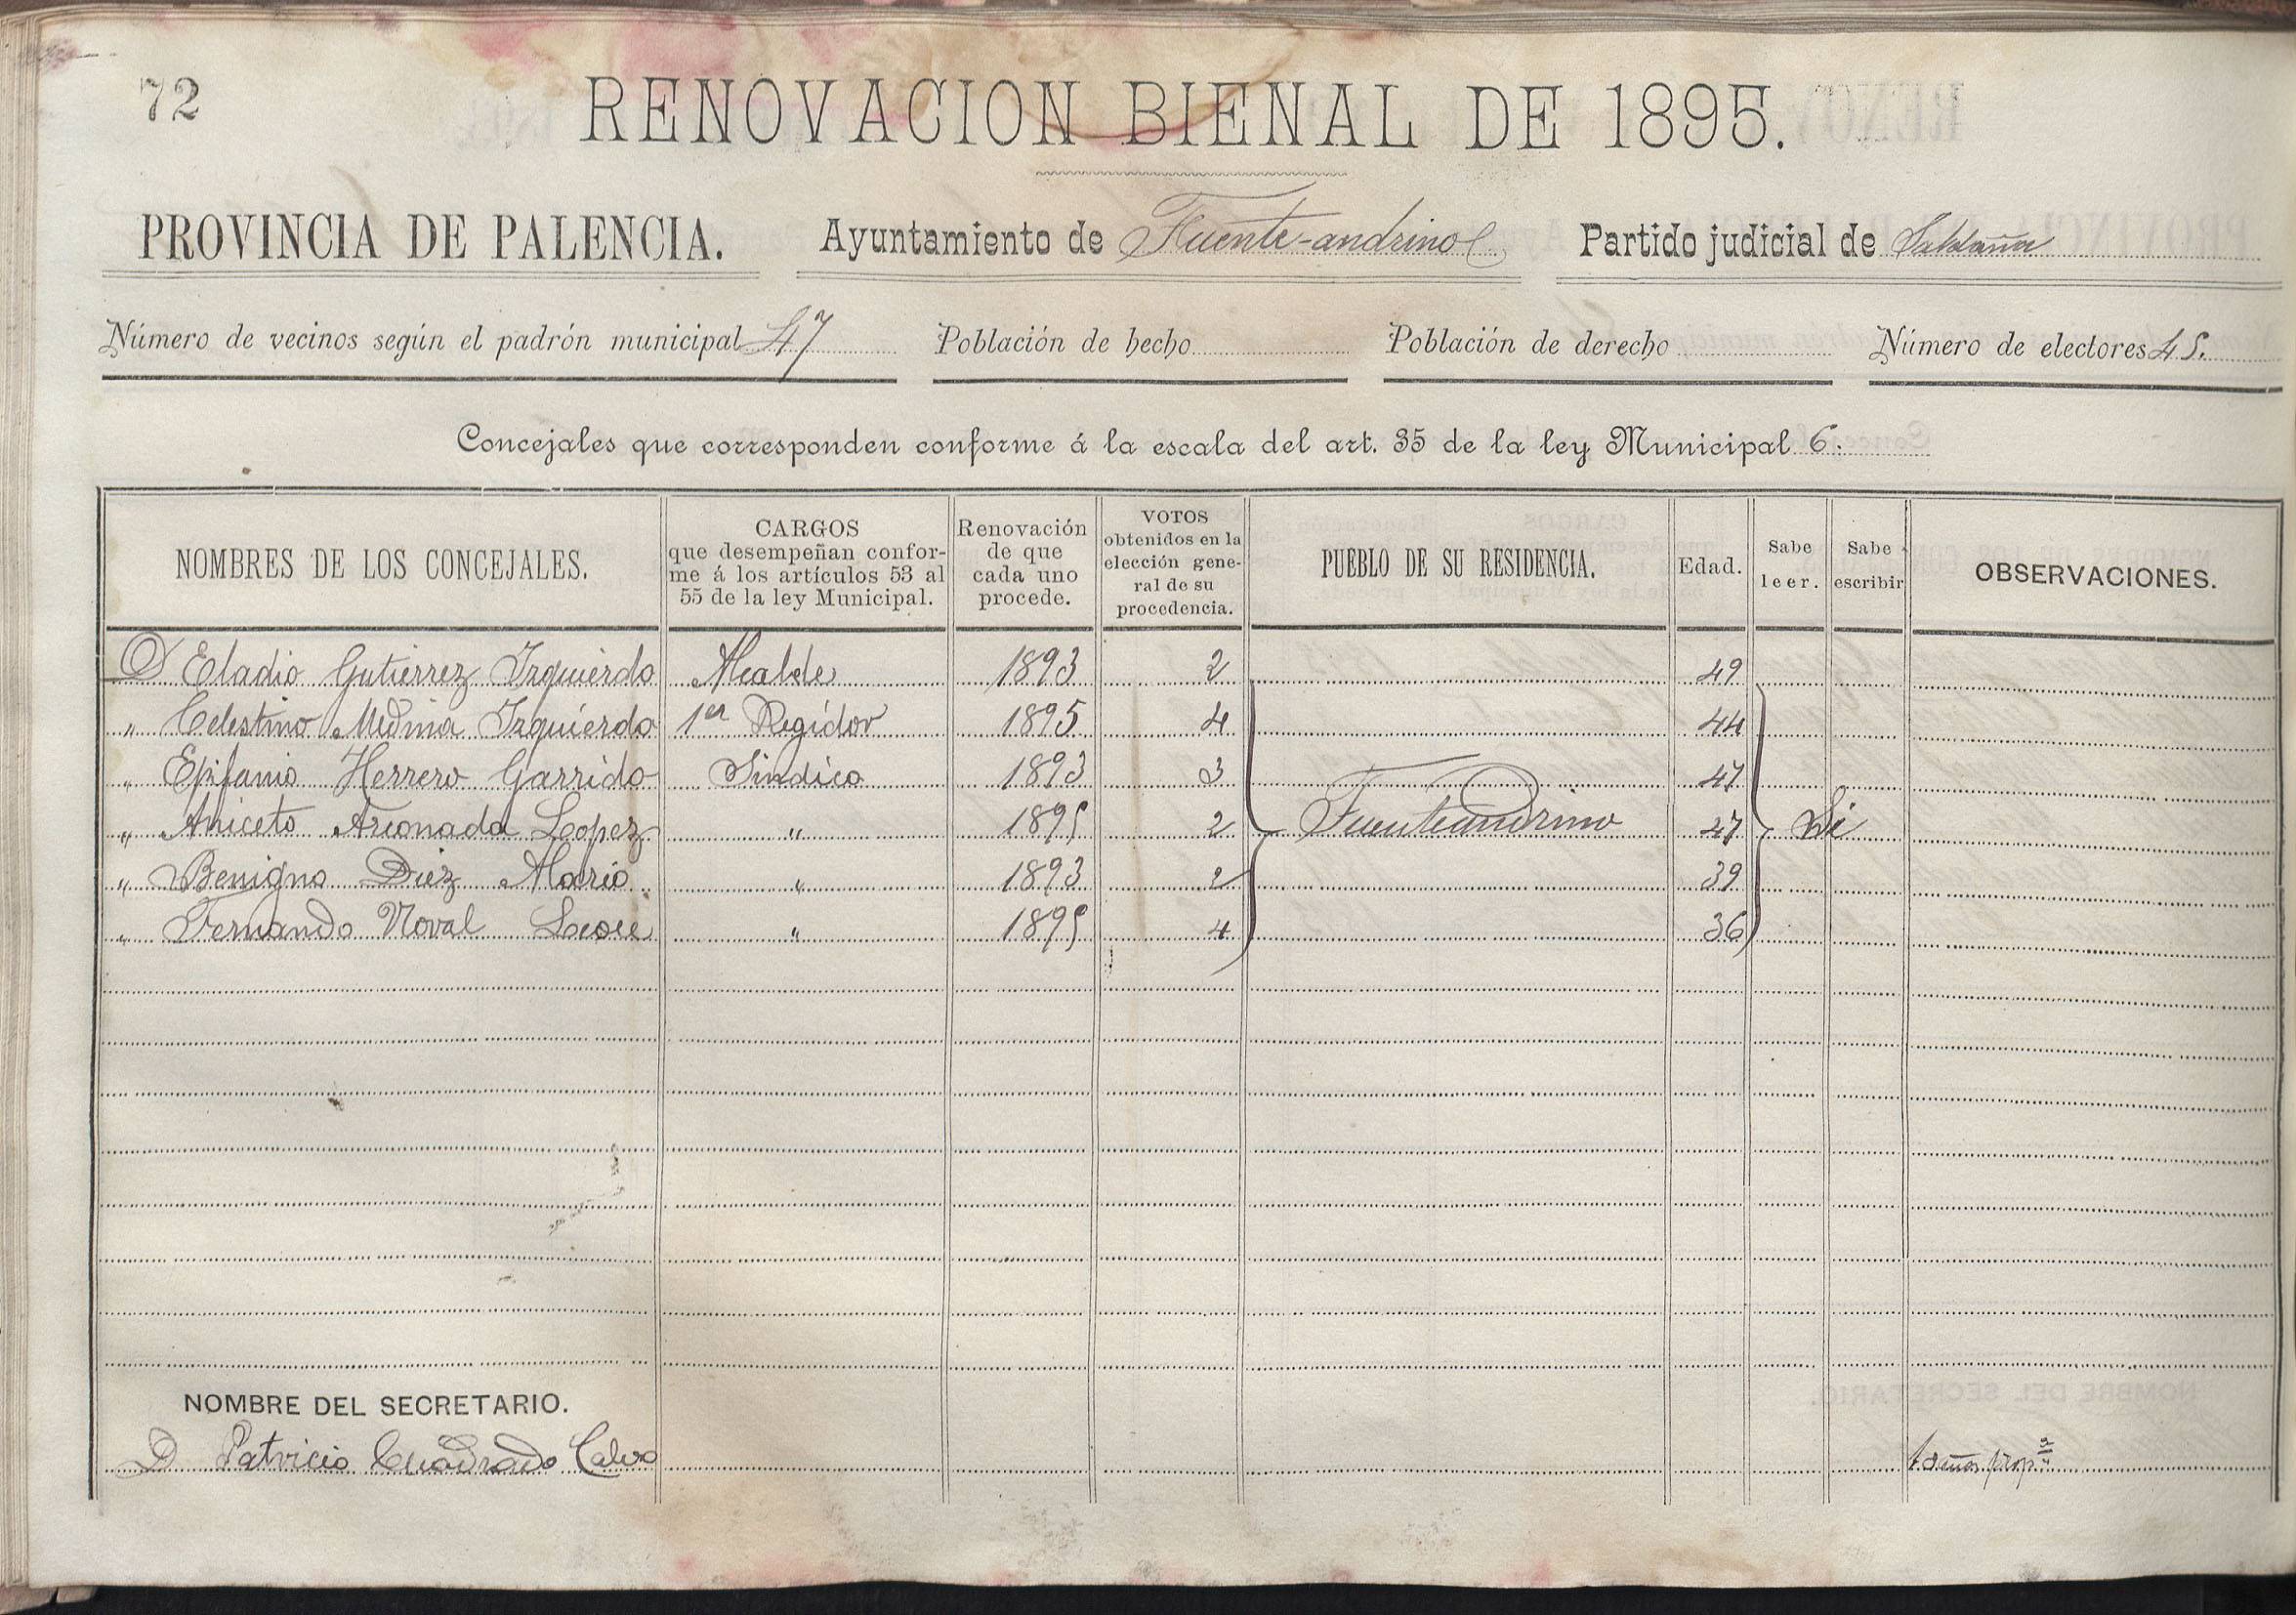 72
RENOVACION BIENAL DE 1895.
PROVINCIA DE PALENCIA. Ayuntamiento de Fuente-andrino Partido judicial de Saldaña
Número de vecinos según el padrón municipal 47 Población de hecho Población de derecho Número de electores 45.
Concejales que corresponden conforme á la escala del art. 35 de la ley Municipal 6.
NOMBRES DE LOS CONCEJALES. CARGOS que desempeñan conforme á los artículos 53 al 55 de la ley Municipal. Renovación de que cada uno procede. VOTOS obtenidos en la elección general de su procedencia. PUEBLO DE SU RESIDENCIA. Edad. Sabe leer. Sabe escribir OBSERVACIONES.
D Eladio Gutierrez Izquierdo Alcalde 1893 2 49
" Celestino Medina Izquierdo 1er Regidor 1895 4 44
" Epifanio Herrero Garrido Sindico 1893 3 47
" Aniceto Arconada Lopez " 1895 2 Fuenteandrino 27 Si
" Benigno Diez " 1893 2 39
" Fernando Noval " 1895 4 36
NOMBRE DEL SECRETARIO.
D Patricio Cuadrado Calvo